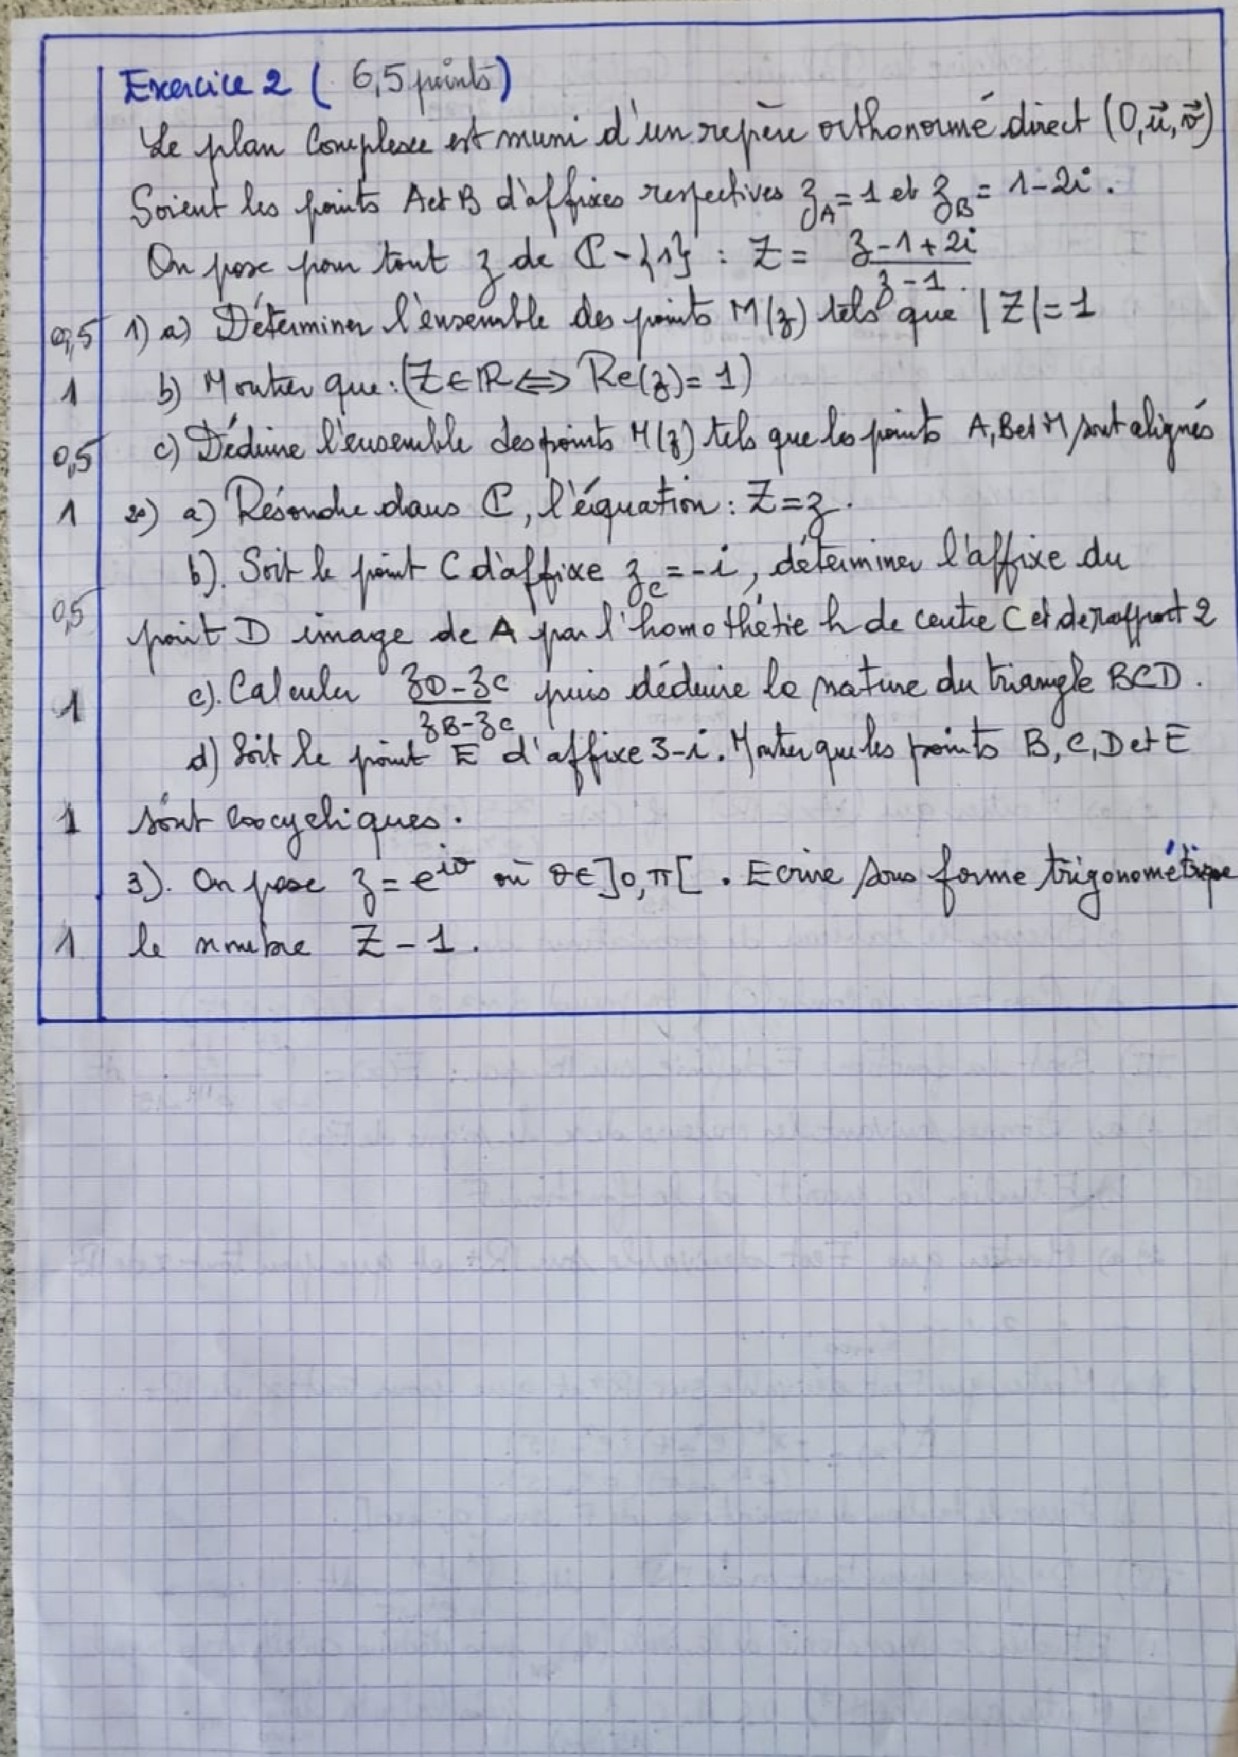 Exercice 2 ( 6,5 points)
Le plan Complexe est muni d'un repère orthonormé direct (O,u⃗,v⃗)
Soient les points A et B d'affixes respectives z_A = 1 et z_B = 1-2i.
On pose pour tout z de ℂ-{1} : Z = (z-1+2i)/(z-1).
0,5 1) a) Déterminer l'ensemble des points M(z) tels que |Z|=1
1 b) Montrer que : (Z∈ℝ ⟺ Re(z)=1)
0,5 c) Déduire l'ensemble des points M(z) tels que les points A, B et M sont alignés
1 2°) a) Résoudre dans ℂ, l'équation : Z=z.
b). Soit le point C d'affixe z_C = -i, déterminer l'affixe du
0,5 point D image de A par l'homothétie h de centre C et de rapport 2
1 c). Calculer (z_D - z_C)/(z_B - z_C) puis déduire la nature du triangle BCD.
d) Soit le point E d'affixe 3-i. Montrer que les points B, C, D et E
1 sont cocycliques.
3). On pose z = e^{iθ} où θ∈]0,π[. Ecrire sous forme trigonométrique
1 le nombre Z-1.